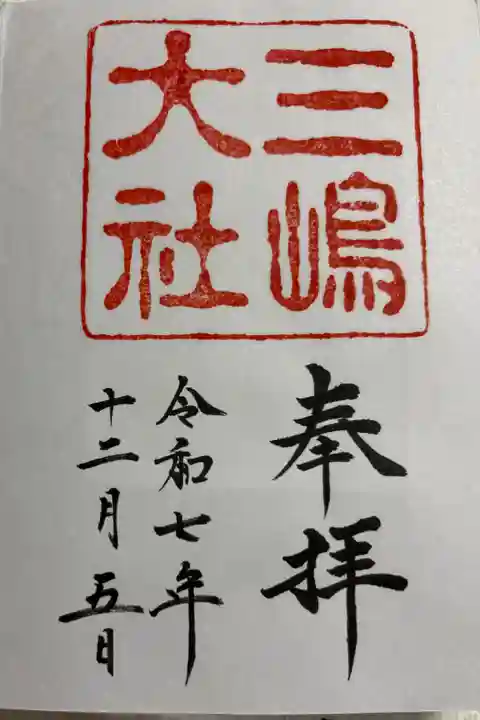 三嶋
大社
奉拝
令和七年
十二月五日